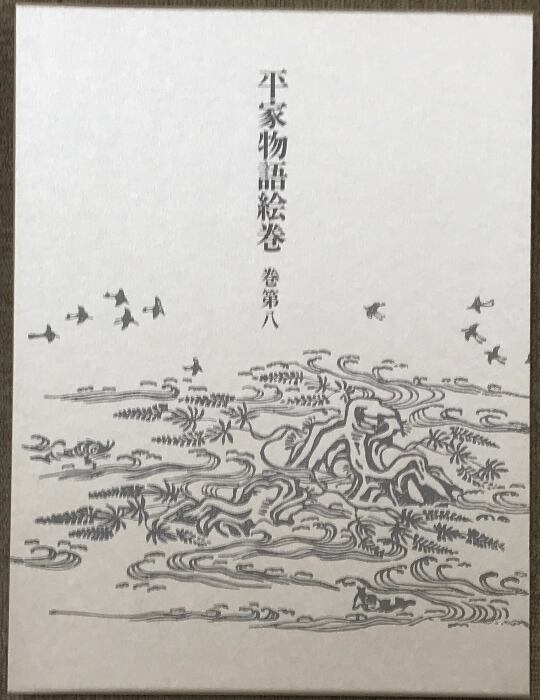 平家物語絵巻 巻第八